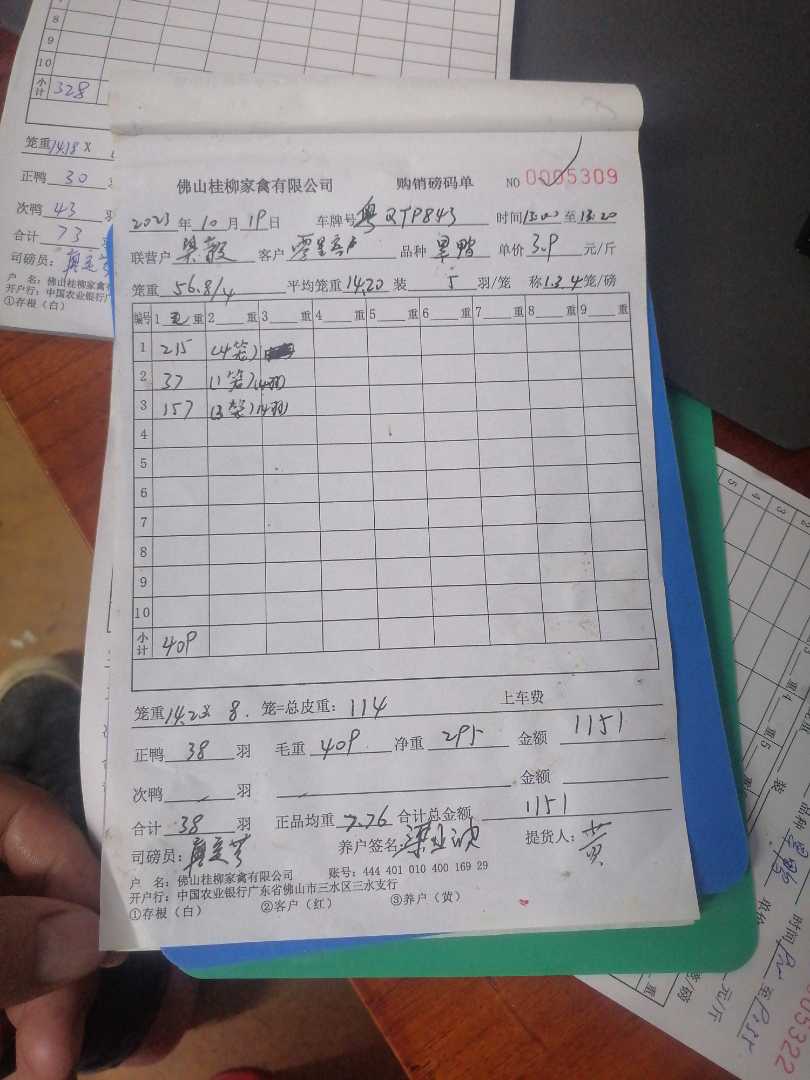 佛山桂柳家禽有限公司 购销磅码单 NO 0005309
2023年10月19日 车牌号 粤QTP843 时间13:00至13:20
联营户 客户 零星客户 品种 单价 3.9 元/斤
笼重 56.8/4 平均笼重 14.20 装 5 羽/笼 称1.3.4笼/磅
编号 1 毛 重 2 重 3 重 4 重 5 重 6 重 7 重 8 重 9 重
1 215 (4笼)
2 37 (1笼)(4羽)
3 157 (3笼)(14羽)
4
5
6
7
8
9
10
小计 409
笼重14.2x 8. 笼=总皮重: 114 上车费
正鸭 38 羽 毛重 409 净重 295 金额 1151
次鸭 羽 金额
合计 38 羽 正品均重 7.76 合计总金额 1151
司磅员: 养户签名: 提货人: 黄
户 名: 佛山桂柳家禽有限公司 账号: 444 401 010 400 169 29
开户行: 中国农业银行广东省佛山市三水区三水支行
①存根(白) ②客户(红) ③养户(黄)
9
10
小计 328
笼重14.18 x
正鸭 30
次鸭 43
合计 73
司磅员:
户 名: 佛山桂柳家禽有
开户行: 中国农业银行广
①存根(白)
005322